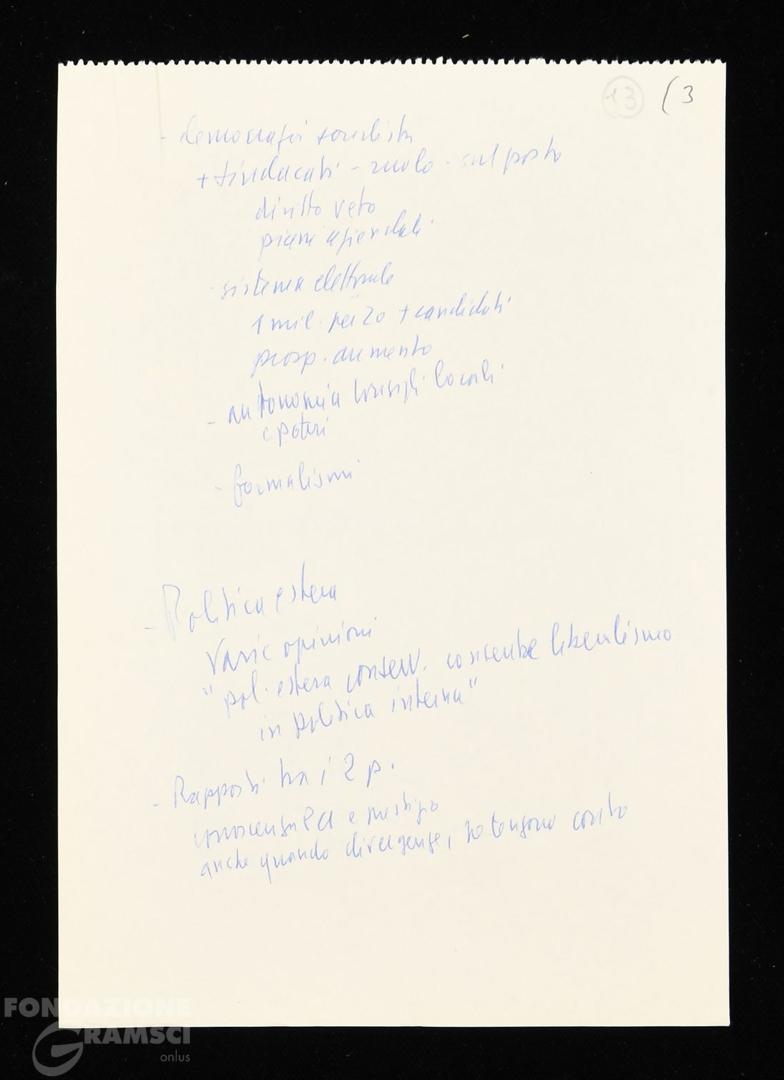 13 (3
- democrazia socialista
+ sindacati - ruolo - sul posto
diritto veto
piani aziendali
- sistema elettorale
1 mil. + candidati
prosp. aumento
- autonomia consigli locali
e poteri
- formalismi
- Politica estera
Varie opinioni
"pol. estera conserv. consente liberalismo
in politica interna"
- Rapporti tra i 2 p.
conoscenza PCI e prestigio
anche quando divergenze, ne tengono conto
FONDAZIONE
GRAMSCI
onlus